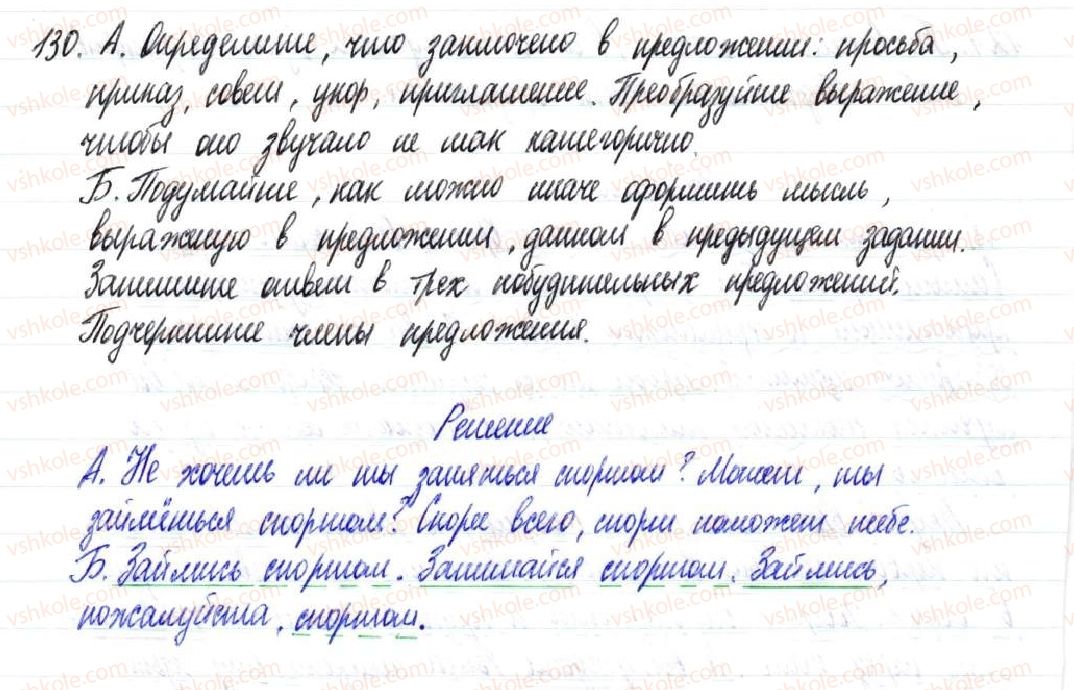 130. А. Определите, что заключено в предложении: просьба,
приказ, совет, упор, приглашение. Преобразуйте выражение,
чтобы оно звучало не так категорично.
Б. Подумайте, как можно иначе оформить мысль,
выраженную в предложении, данном в предыдущем задании.
Запишите ответ в трех побудительных предложений.
Подчеркните члены предложения.
Решение
А. Не хочешь ли ты заняться спортом? Может, ты
займёшься спортом? Скорее всего, спорт поможет тебе.
Б. Займись спортом. Занимайся спортом. Займись,
пожалуйста, спортом.
vshkole.com